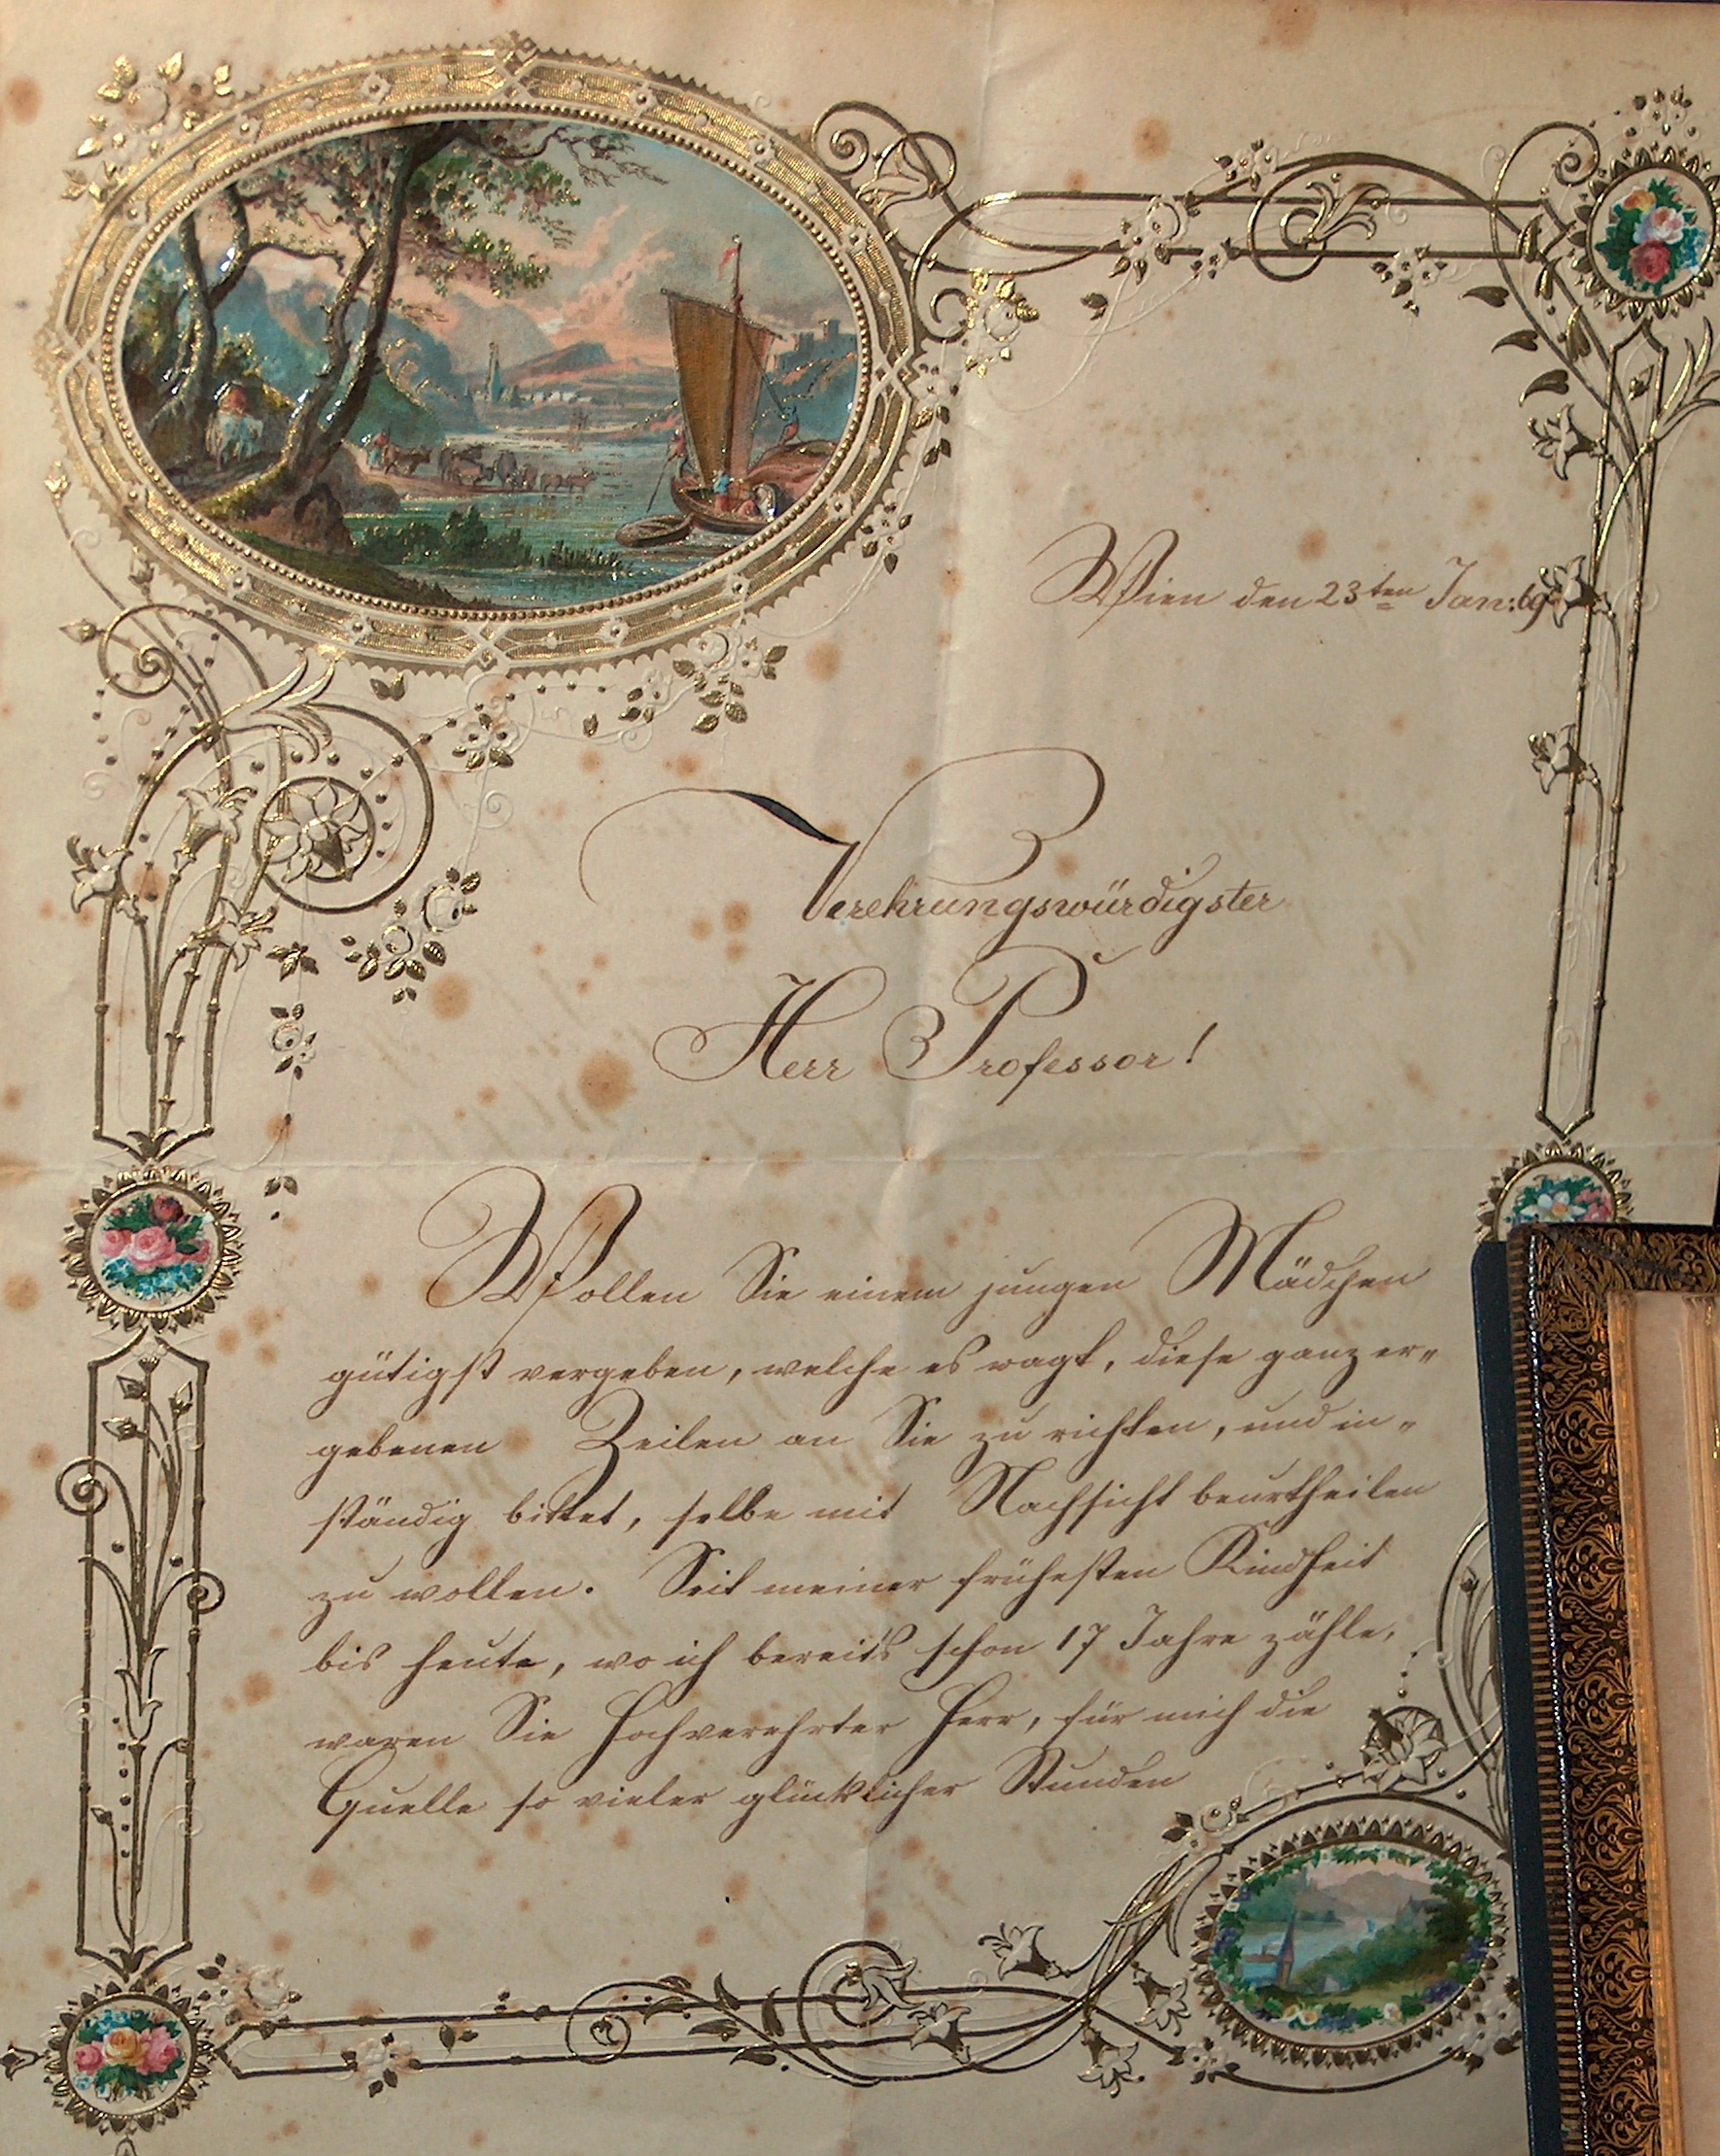 Wien den 23ten Jan: 69
Verehrungswürdigster
Herr Professor!
Wollen Sie einem jungen Mädchen
gütigst vergeben, welche es wagt, diese ganz er„
gebenen Zeilen an Sie zu richten, und in„
ständig bittet, selbe mit Nachsicht beurtheilen
zu wollen. Seit meiner frühesten Kindheit
bis heute, wo ich bereits schon 17 Jahre zähle,
waren Sie hochverehrter Herr, für mich die
Quelle so vieler glücklicher Stunden